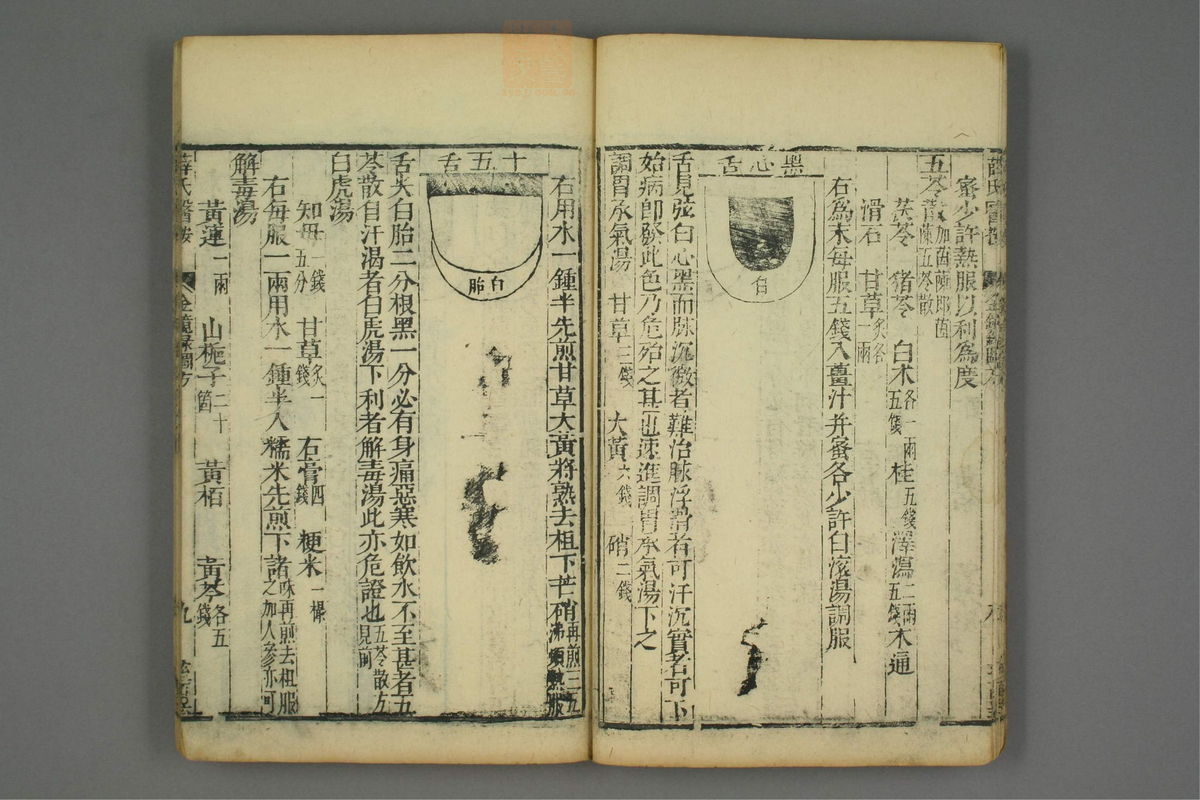 蜜少許熱服以利為度
五苓散加茵蔯即茵蔯五苓散
茯苓 猪苓 白术各一兩五錢 桂五錢 澤瀉二兩五錢 木通
滑石 甘草炙各一兩
右為末每服五錢入薑汁并蜜各少許白滾湯調服
黑心舌
白
舌見弦白心黑而脉沉微者難治脉浮滑者可汗沉實者可下
始病即發此色乃危殆之甚也速進調胃承氣湯下之
調胃承氣湯 甘草三錢 大黃六錢 硝二錢
右用水一鍾半先煎甘草大黃將熟去柤下芒硝再煎三五沸頻熱服
十五舌
白胎
舌尖白胎二分根黑一分必有身痛惡寒如飲水不至甚者五
苓散自汗渴者白虎湯下利者解毒湯此亦危證也五苓散方見前
白虎湯
知母一錢五分 甘草炙一錢 石膏四錢 粳米一撮
右每服一兩用水一鍾半入糯米先煎下諸味再煎去柤服之加人參亦可
解毒湯
黃連一兩 山梔子二十箇 黃栢 黃芩各五錢
薛氏醫按 金鏡錄圖方 九